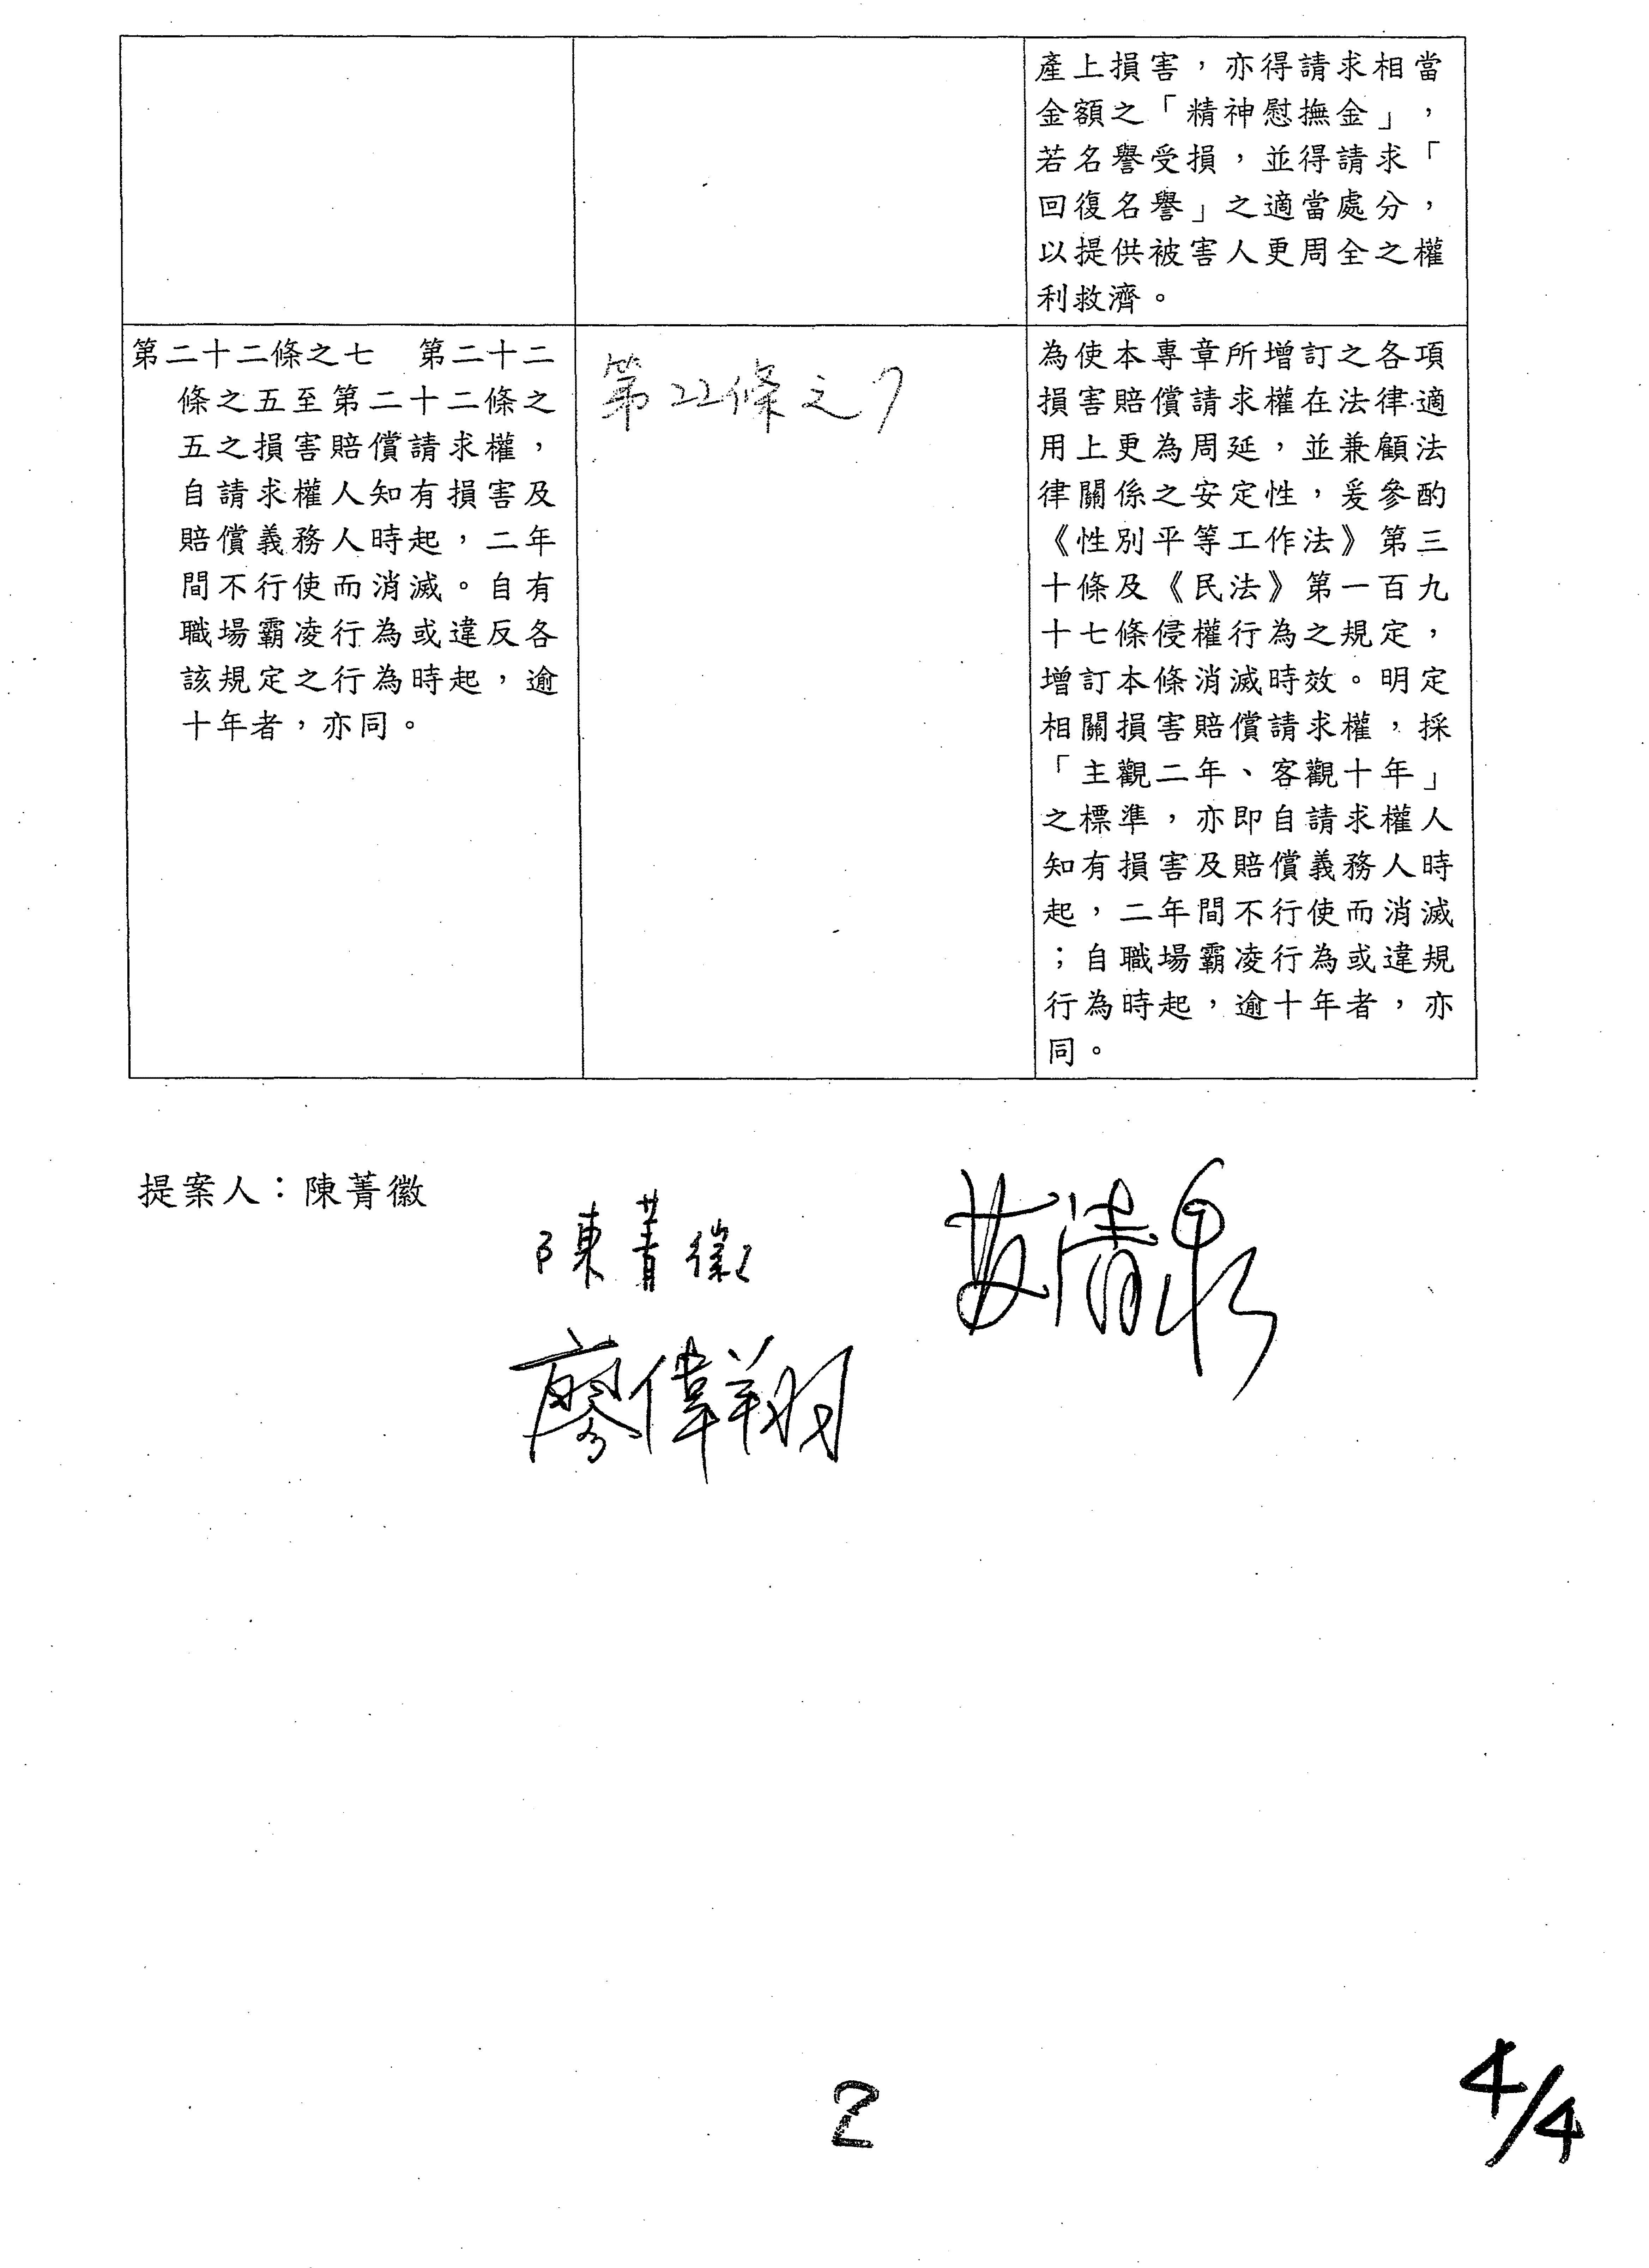 產上損害，亦得請求相當
金額之「精神慰撫金」，
若名譽受損，並得請求「
回復名譽」之適當處分，
以提供被害人更周全之權
利救濟。
第二十二條之七　第二十二
條之五至第二十二條之
五之損害賠償請求權，
自請求權人知有損害及
賠償義務人時起，二年
間不行使而消滅。自有
職場霸凌行為或違反各
該規定之行為時起，逾
十年者，亦同。
第22條之7
為使本專章所增訂之各項
損害賠償請求權在法律適
用上更為周延，並兼顧法
律關係之安定性，爰參酌
《性別平等工作法》第三
十條及《民法》第一百九
十七條侵權行為之規定，
增訂本條消滅時效。明定
相關損害賠償請求權，採
「主觀二年、客觀十年」
之標準，亦即自請求權人
知有損害及賠償義務人時
起，二年間不行使而消滅
；自職場霸凌行為或違規
行為時起，逾十年者，亦
同。
提案人：陳菁徽
陳菁徽
廖偉翔
2
4/4